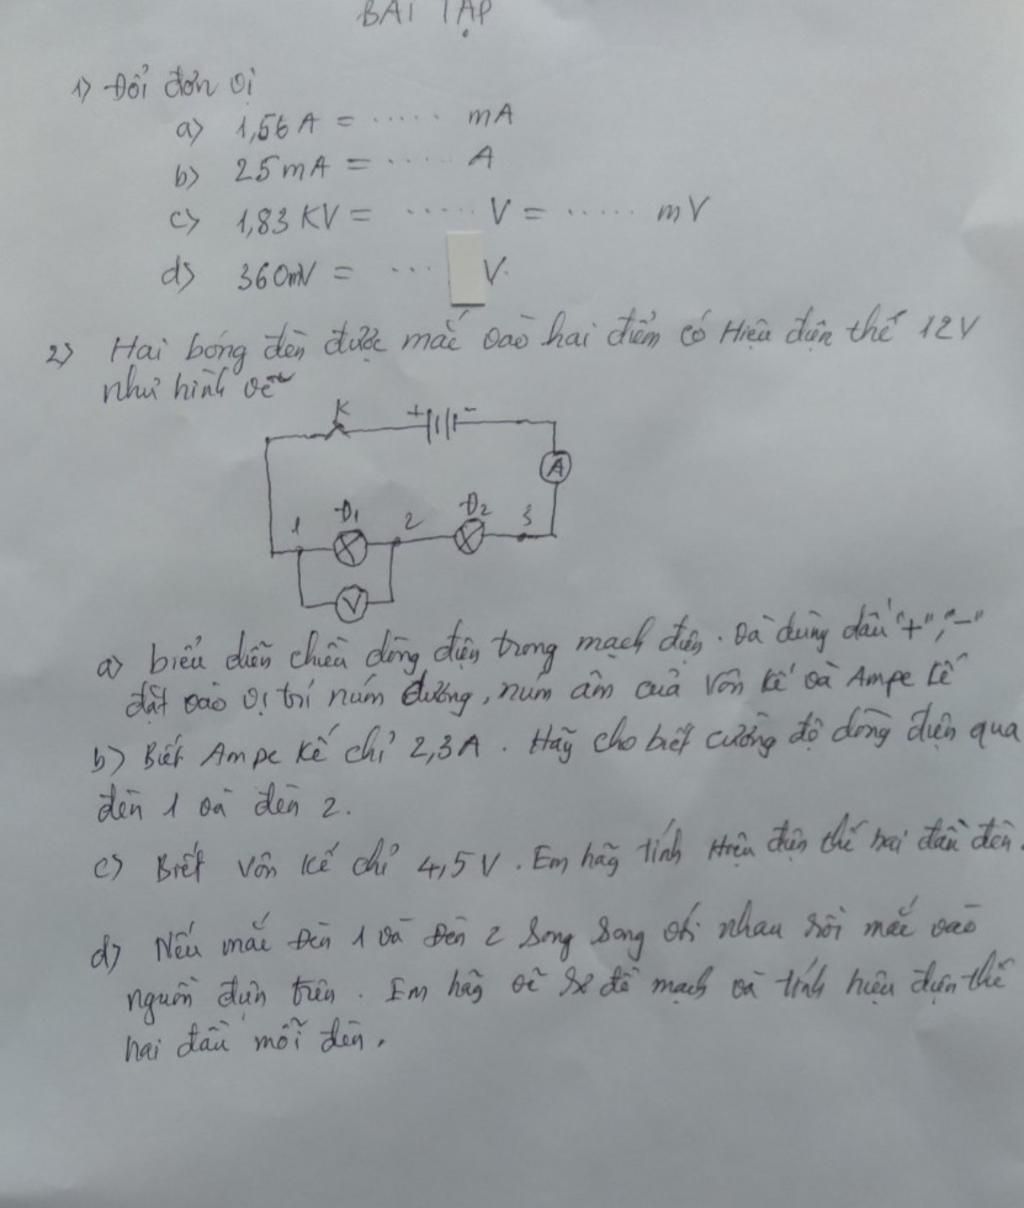 BÀI TẬP
1) Đổi đơn vị
a) 1,56A = ..... mA
b) 25mA = ..... A
c) 1,83KV = ..... V = ..... mV
d) 360mV = ... V.
2) Hai bóng đèn được mắc vào hai điểm có Hiệu điện thế 12V
như hình vẽ
K + -
A
1 Đ1 2 Đ2 3
V
a) biểu diễn chiều dòng điện trong mạch điện. và dùng dấu "+", "-"
đặt vào vị trí núm dương, núm âm của Vôn kế và Ampe kế
b) Biết Ampe kế chỉ 2,3A. Hãy cho biết cường độ dòng điện qua
đèn 1 và đèn 2.
c) Biết Vôn kế chỉ 4,5V. Em hãy tính Hiệu điện thế hai đầu đèn.
d) Nếu mắc Đèn 1 và Đèn 2 song song với nhau rồi mắc vào
nguồn điện trên. Em hãy vẽ sơ đồ mạch và tính hiệu điện thế
hai đầu mỗi đèn.